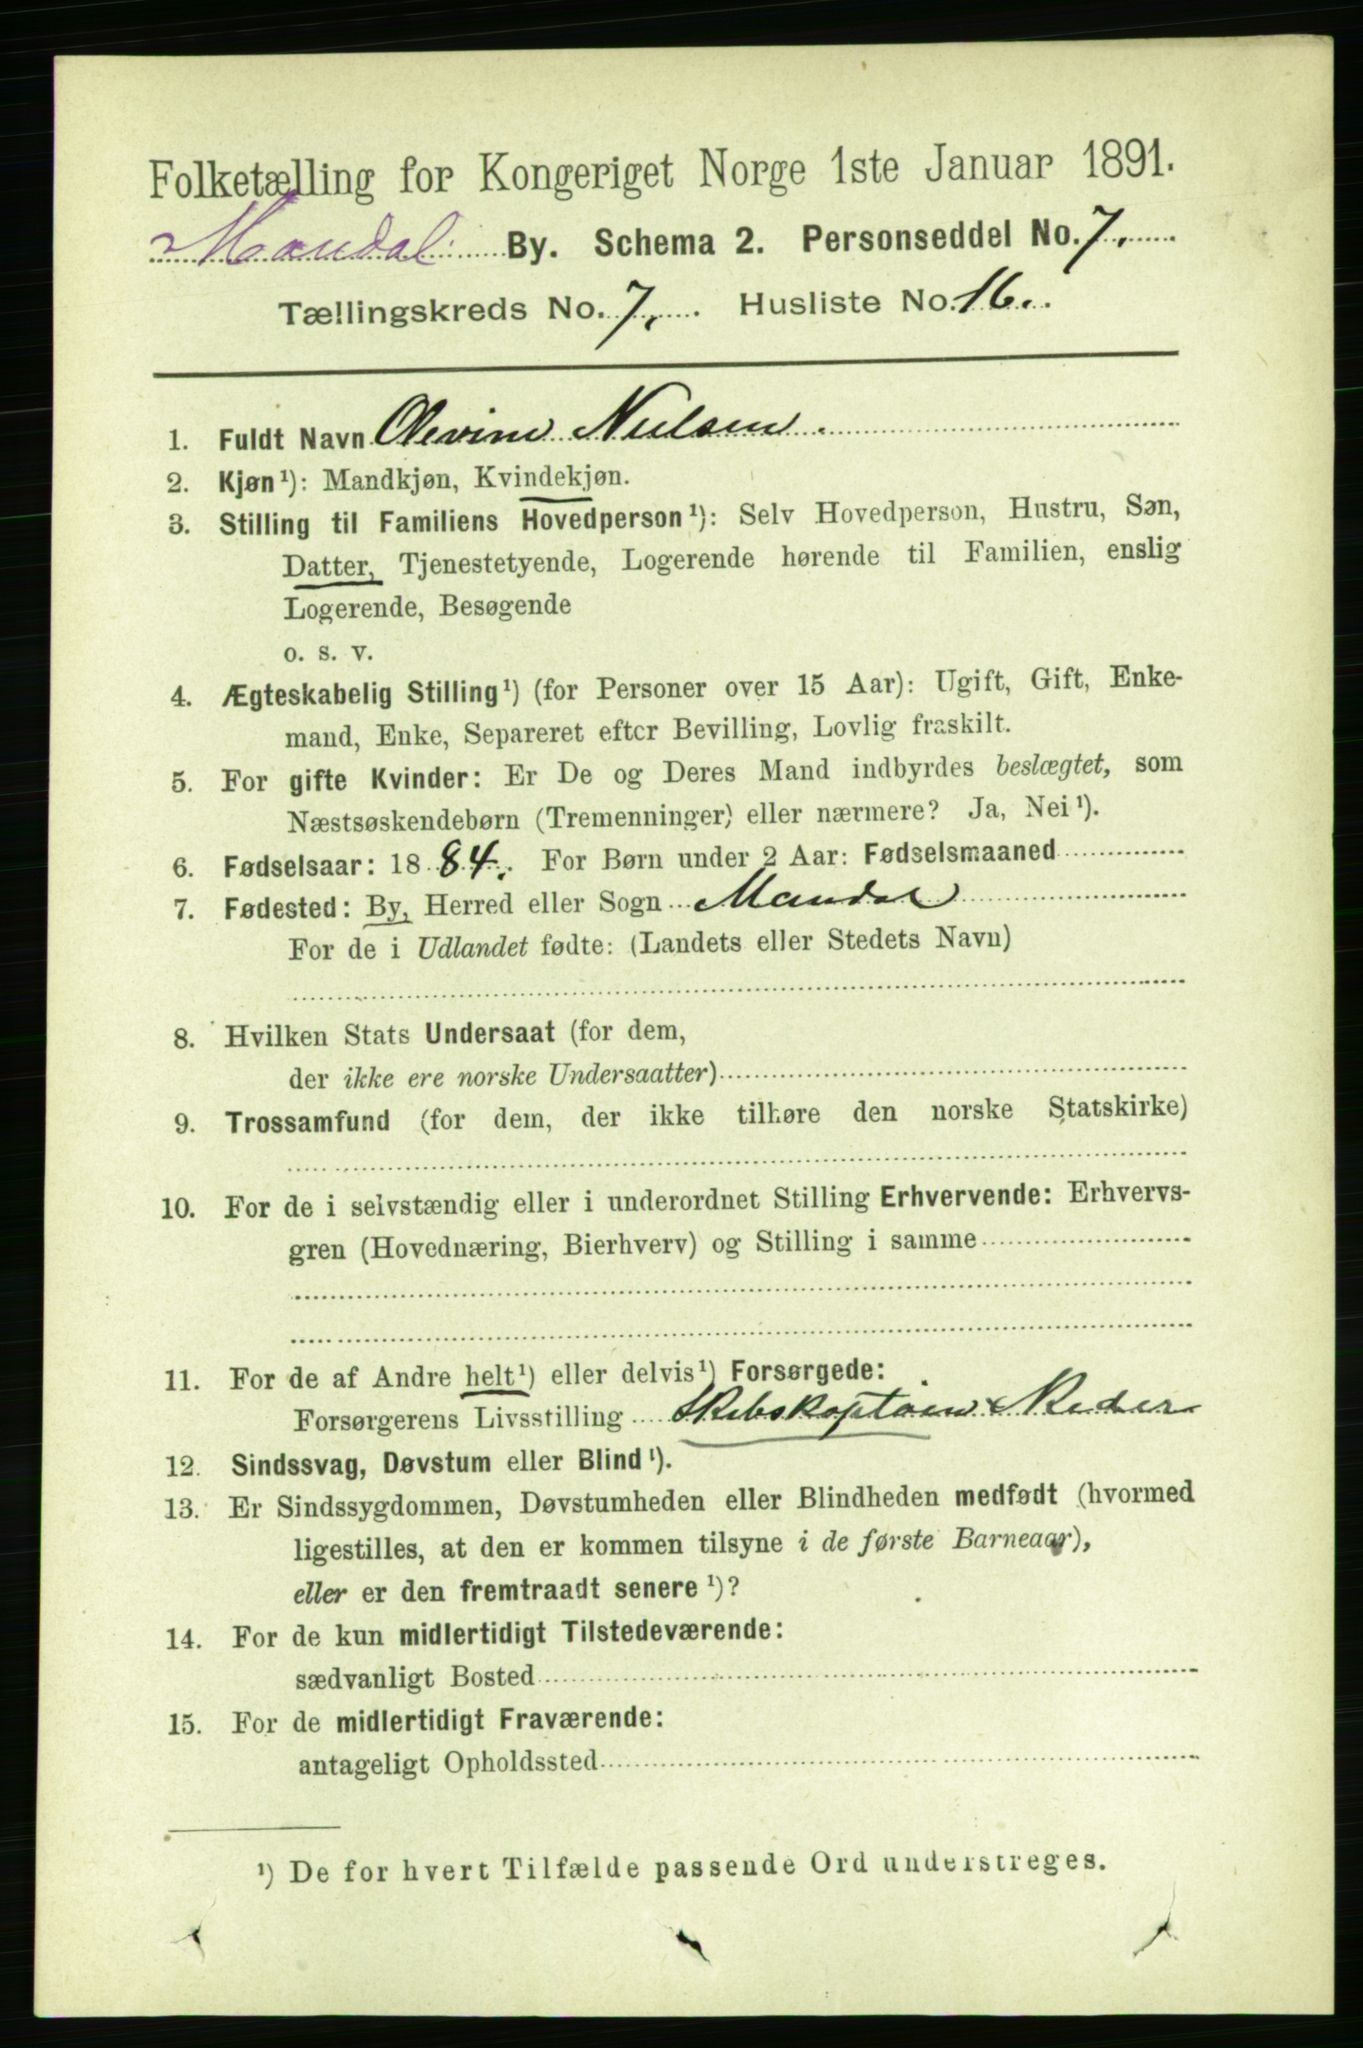 Folketælling for Kongeriget Norge 1ste Januar 1891.
Mandal By. Schema 2. Personseddel No. 7.
Tællingskreds No. 7. Husliste No. 16.
1. Fuldt Navn Olevine Nielsen.
2. Kjøn ¹): Mandkjøn, Kvindekjøn.
3. Stilling til Familiens Hovedperson ¹): Selv Hovedperson, Hustru, Søn,
Datter, Tjenestetyende, Logerende hørende til Familien, enslig
Logerende, Besøgende
o. s. v.
4. Ægteskabelig Stilling ¹) (for Personer over 15 Aar): Ugift, Gift, Enke-
mand, Enke, Separeret efter Bevilling, Lovlig fraskilt.
5. For gifte Kvinder: Er De og Deres Mand indbyrdes beslægtet, som
Næstsøskendebørn (Tremenninger) eller nærmere? Ja, Nei ¹).
6. Fødselsaar: 1884. For Børn under 2 Aar: Fødselsmaaned
7. Fødested: By, Herred eller Sogn Mandal
For de i Udlandet fødte: (Landets eller Stedets Navn)
8. Hvilken Stats Undersaat (for dem,
der ikke ere norske Undersaatter)
9. Trossamfund (for dem, der ikke tilhøre den norske Statskirke)
10. For de i selvstændig eller i underordnet Stilling Erhvervende: Erhvervs-
gren (Hovednæring, Bierhverv) og Stilling i samme
11. For de af Andre helt ¹) eller delvis ¹) Forsørgede:
Forsørgerens Livsstilling Skibskaptain & Reder
12. Sindssvag, Døvstum eller Blind ¹).
13. Er Sindssygdommen, Døvstumheden eller Blindheden medfødt (hvormed
ligestilles, at den er kommen tilsyne i de første Barneaar),
eller er den fremtraadt senere ¹)?
14. For de kun midlertidigt Tilstedeværende:
sædvanligt Bosted
15. For de midlertidigt Fraværende:
antageligt Opholdssted
¹) De for hvert Tilfælde passende Ord understreges.